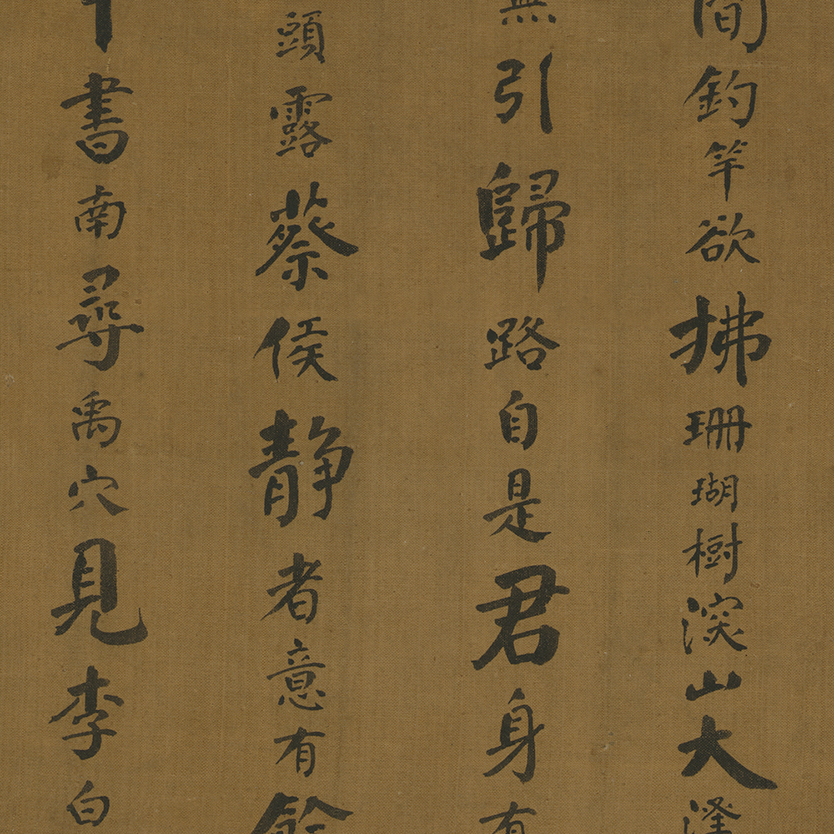 間釣竿欲拂珊瑚樹深山大澤
無引歸路自是君身有
頭露蔡侯靜者意有餘
書南尋禹穴見李白